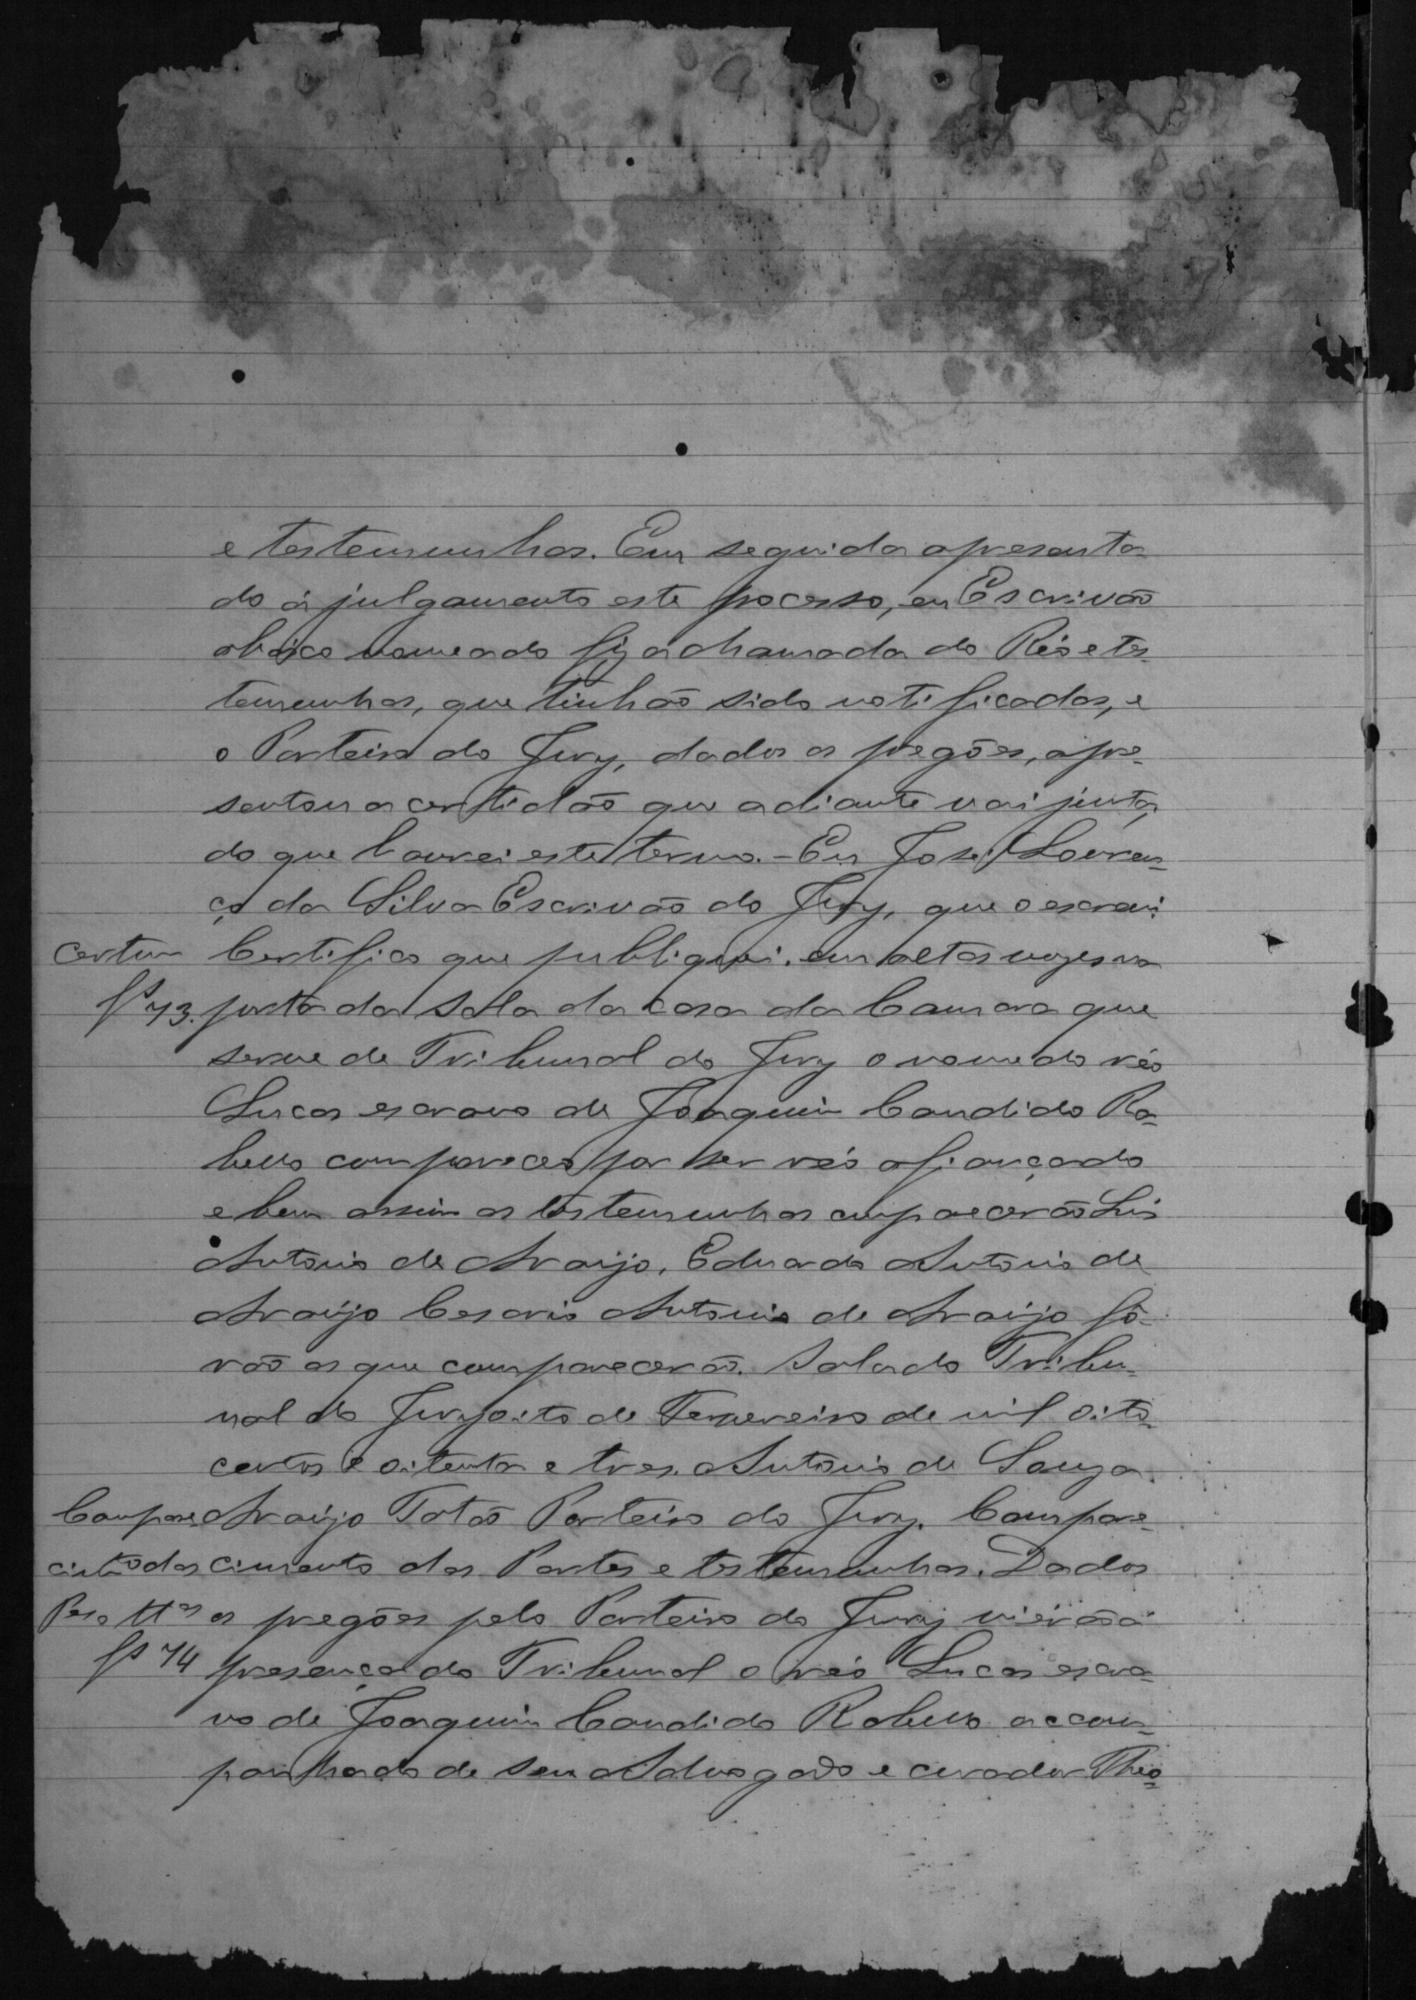 e testemunhas. Em seguida apresenta-
do á julgamento este processo, eu Escrivão
abaixo nomeado fiz a chamada do Réo e tes-
temunhas, que tinhão sido notificadas, e
o Porteiro do Jury, dados os pregões, apre-
sentou a certidão que adiante vai junta,
do que lavrei este termo. - Eu José Louren-
ço da Silva Escrivão do Jury, que o escrevi
Certam Certifico que publiquei. em altas vozes na
fs 73. porta da sala da casa da Camara que
serve de Tribunal do Jury o nome do réo
Lucas escravo de Joaquim Candido Ra-
bello compareceo por ser réo afiançado
e bem assim as testemunhas comparecerão Luis
Antonio de Araujo, Eduardo Antonio de
Araujo Cesario Antonio de Araujo fô-
rão os que comparecerão. Sala do Tribu-
nal do Jury oito de Fevereiro de mil oito-
centos e oitenta e tres. Antonio de Souza
Compare- Araujo Totão Porteiro do Jury. Compare-
cimto das cimento das Partes e testemunhas. Dados
Pes e ttas os pregões pelo Porteiro do Jury vierão á
fs 74 presença do Tribunal o réo Lucas escra-
vo de Joaquim Candido Rabello accom-
panhado de seu Advogado e curador Theo-